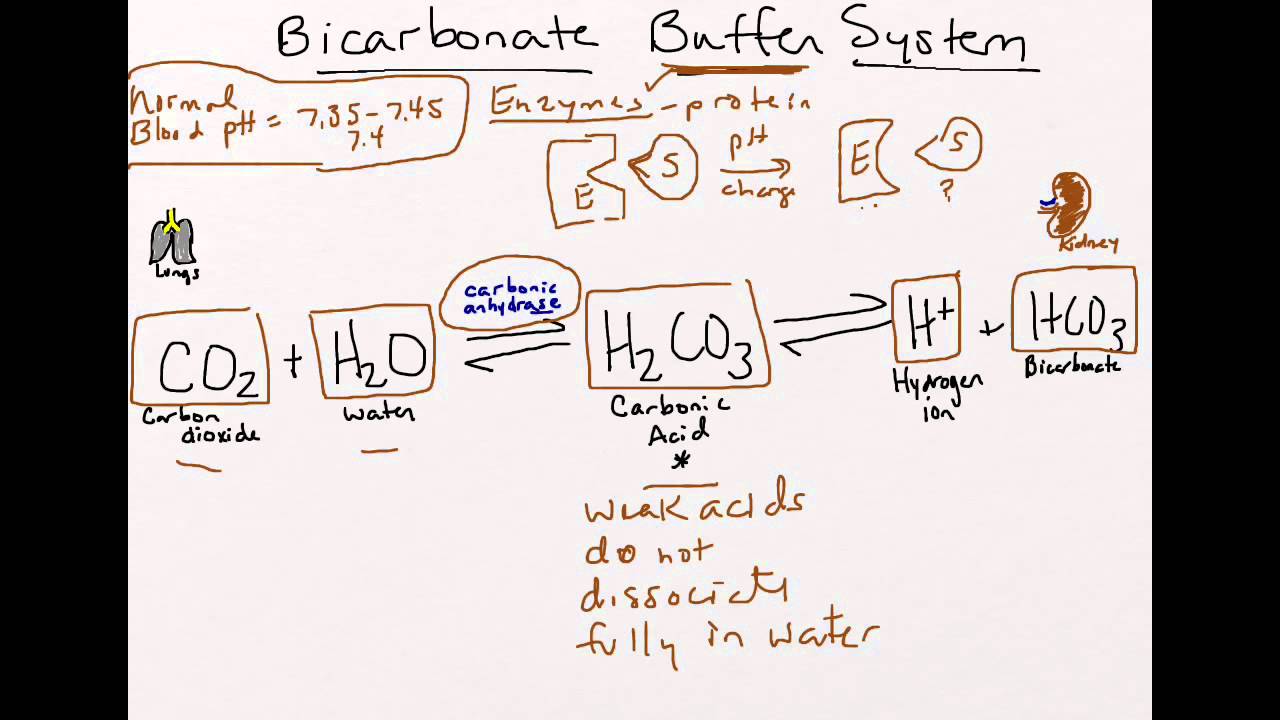 Bicarbonate Buffer System
Normal
Blood pH = 7.35 - 7.45
7.4
Enzymes - protein
E
S
pH
change
E
S
?
Lungs
Kidney
carbonic
anhydrase
CO2 + H2O
H2CO3
H+ + HCO3
Carbon
dioxide
Water
Carbonic
Acid
*
Hydrogen
ion
Bicarbonate
weak acids
do not
dissociate
fully in water